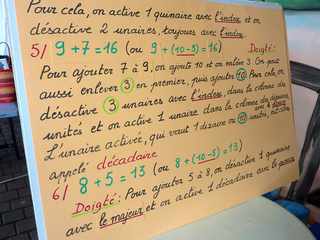 Pour cela, on active 1 quinaire avec l'index et on
désactive 2 unaires, toujours avec l'index.
5/ 9 + 7 = 16 (ou 9 + (10 - 5) = 16) Doigté :
Pour ajouter 7 à 9, on ajoute 10 et on enlève 3. On peut
aussi enlever 3 en premier, puis ajouter 10. Pour cela, on
désactive 3 unaires avec l'index, dans la colonne des
unités et on active 1 unaire dans la colonne des dizaines
avec le
L'unaire activé, qui vaut 1 dizaine ou 10 unités, est
appelé décadaire
6/ 8 + 5 = 13 (ou 8 + (10 - 5) = 13)
Doigté : Pour ajouter 5 à 8, on désactive 1 quinaire
avec le majeur et on active 1 décadaire avec le pouce.